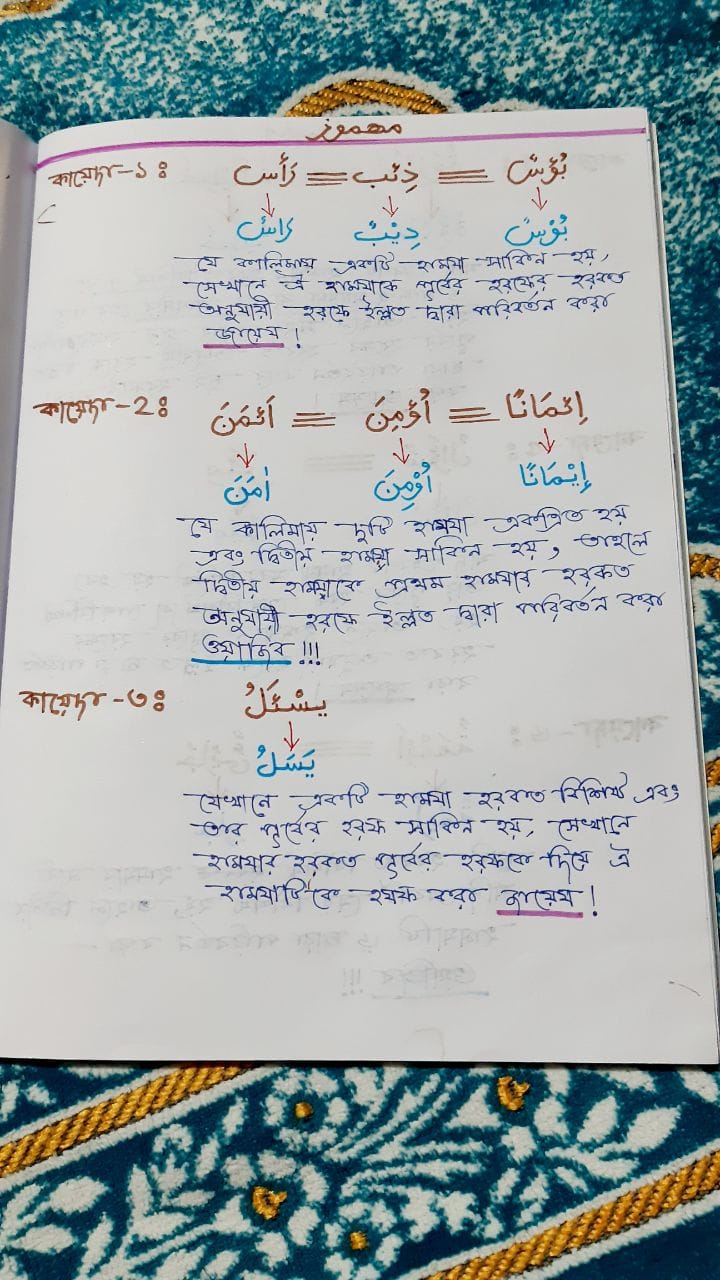 مهموز
কায়েদা-১ঃ رَأْس = ذِئْب = بُؤْسٌ
رَاسٌ ذِيْبٌ بُوْسٌ
যে কালিমায় একটি হামযা সাকিন হয়,
সেখানে ঐ হামযাকে পূর্বের হরফের হরকত
অনুযায়ী হরফে ইল্লত দ্বারা পরিবর্তন করা
জায়েয !
কায়েদা-2ঃ اَئْمَنَ = اُؤْمِنَ = اِئْمَانًا
اٰمَنَ اُوْمِنَ اِيْمَانًا
যে কালিমায় দুটি হামযা একত্রিত হয়
এবং দ্বিতীয় হামযা সাকিন হয়, তাহলে
দ্বিতীয় হামযাকে প্রথম হামযার হরকত
অনুযায়ী হরফে ইল্লত দ্বারা পরিবর্তন করা
ওয়াজিব !!!
কায়েদা-৩ঃ يسْئَلُ
يَسَلُ
যেখানে একটি হামযা হরকত বিশিষ্ট এবং
তার পূর্বের হরফ সাকিন হয়, সেখানে
হামযার হরকত পূর্বের হরফকে দিয়ে ঐ
হামযাটিকে হযফ করা জায়েয !